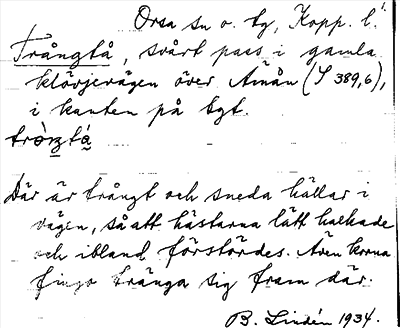 Orsa sn o. tg, Kopp. l.
Trångtå, svårt pass i gamla
klövjevägen över Ämån (S 389,6),
i kanten på tgt.
Där är trångt och sneda hällar i
vägen, så att hästarna lätt halkade
och ibland förstördes. Även korna
fingo tränga sig fram där.
B. Lindén 1934.